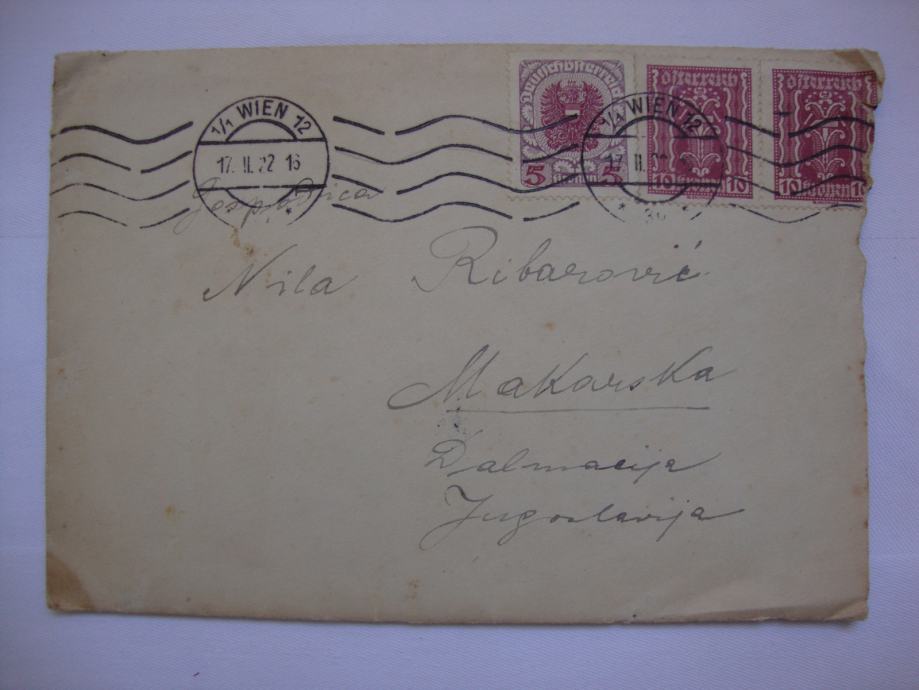 Deutschösterreich
5 Kronen 5
österreich
10 kronen 10
österreich
10 kronen 10
1/1 WIEN 12
17. II. 22 16
1/1 WIEN 12
17 II. 22
Gospodjica
Nila Ribarović
Makarska
Dalmacija
Jugoslavija